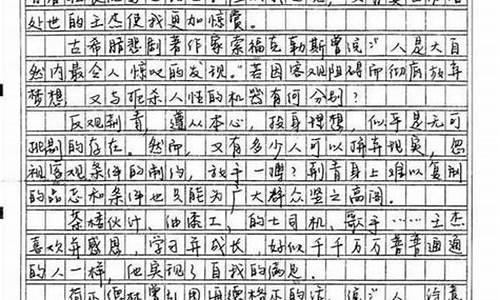 处世的王杰使我更加惊赏。
古希腊悲剧著作家索福克勒斯曾说:"人是大自
然内最令人惊叹的发现。"若因客观阻碍而彻底放弃
梦想,又与扼杀人性的机器有何分别?
反观荆青,遵从本心,投身理想,似乎是无可
挑剔的存在。然而,又有多少人可以摒弃现实,忽
视客观条件的制约,放手一搏?荆青身上难以复制
的品态和条件也只能为广大群众竖之高阁。
茶楼伙计、油漆工、的士司机、歌手……王杰
喜欢并感恩,学习并成长,好似千千万万普普通通
的人一样,他实现了自我的满足。